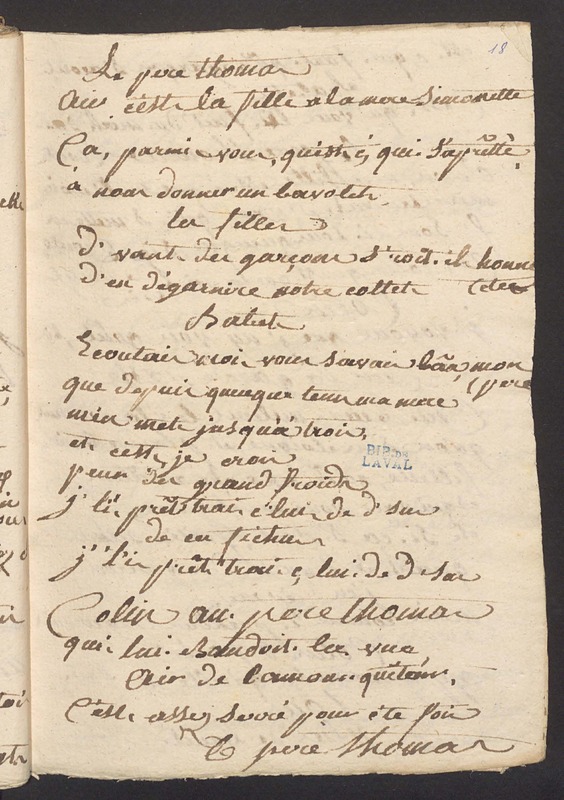 18
Le pere thomas
Air c'est la fille a la mere Simonette
Ça, parmi vous, qu'est ç, qui s'aprête
a nous donner un bavolet
les filles
d'vant des garçons s'roit-il honne
d'en dégarnire notre collet (tes
Babet
Ecoutai moi vous savai bâa, mon
que depuis queuque tems ma mere (pere
m'en met jusqu'a trois,
et c'est, je crois
peur des grand froids
j'li prêtrai c'lui de d'sus
de ces fichus
j'li prêtrai ç lui de d'sus
Colin au pere thomas
qui lui bandoit la vue
Air de l'amour
C'est assez serré pour éte fois
pere thomas
BIB. DE
LAVAL